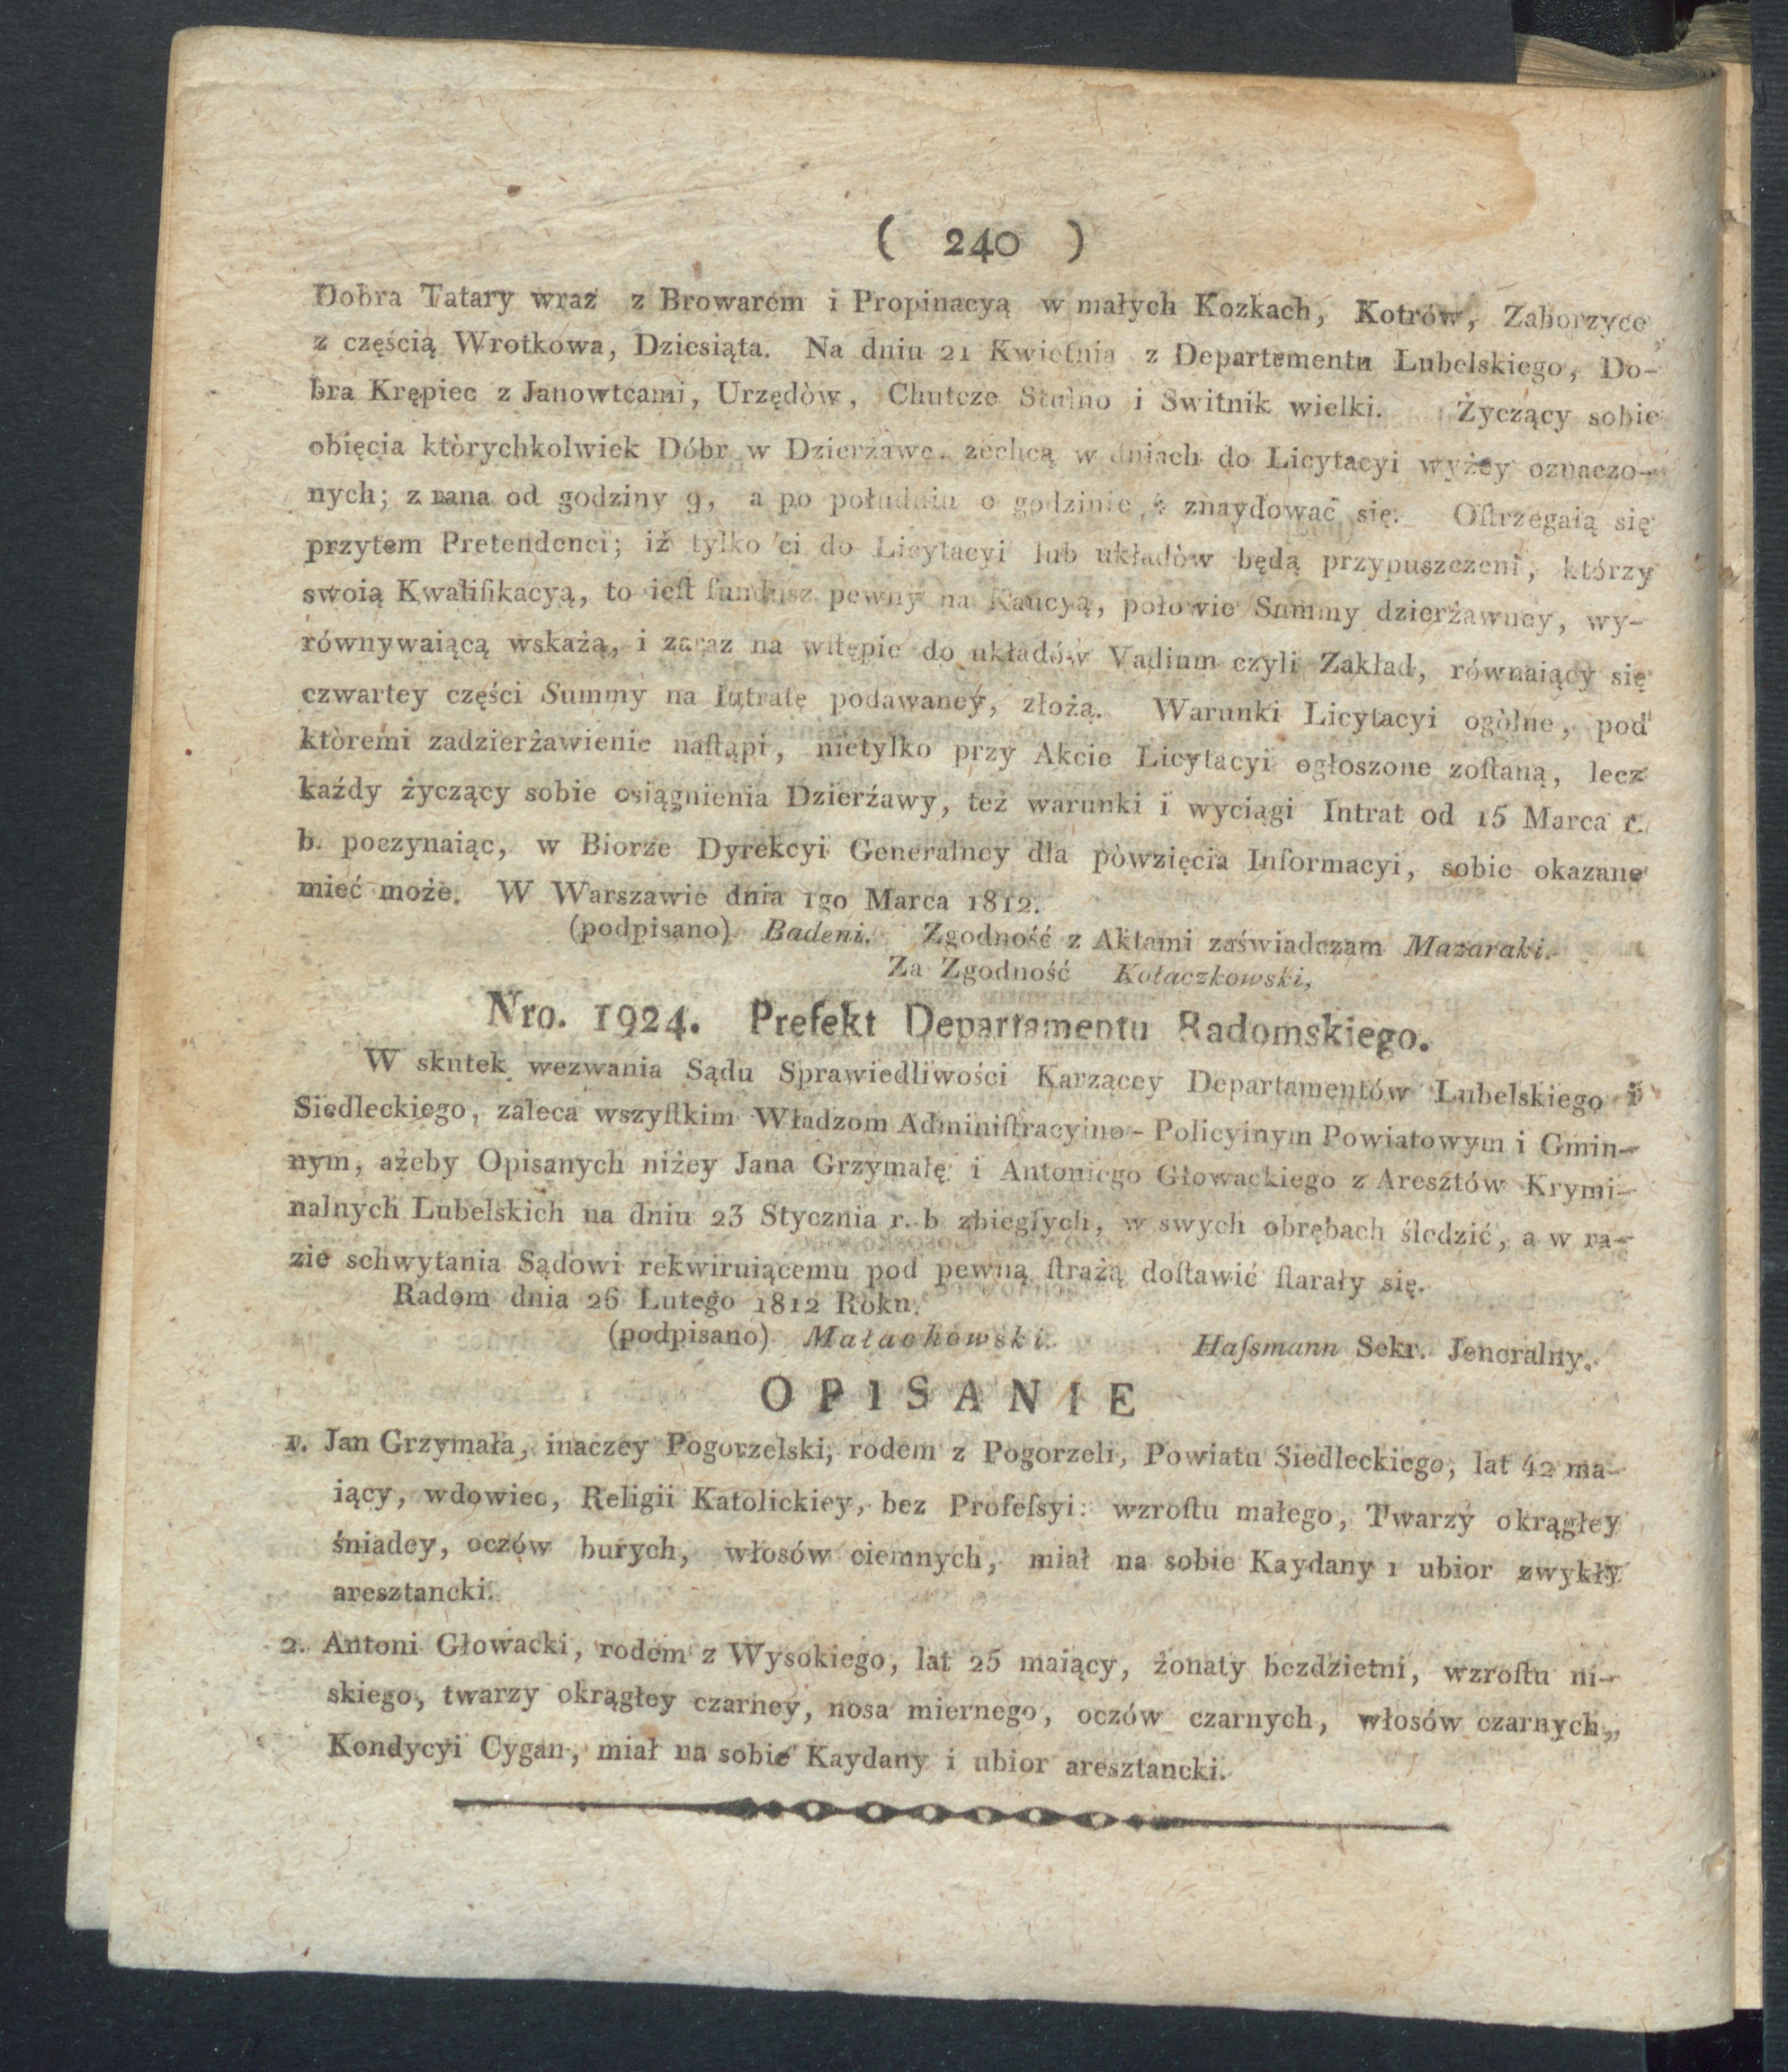 ( 240 )
Dobra Tatary wraz z Browarem i Propinacyą w małych Kozkach, Kotrów, Zaborzyce,
z częścią Wrotkowa, Dziesiąta. Na dniu 21 Kwietnia z Departementu Lubelskiego, Do-
bra Krępiec z Janowicami, Urzędòw, Chutcze Stulno i Switnik wielki. Życzący sobie
obięcia którychkolwiek Dóbr w Dzierżawę. zechcą w dniach do Licytacyi wyżey oznaczo-
nych; z rana od godziny 9, a po południu o godzinie znaydować się. Oſtrzegaią się
przytem Pretendenci; iż tylko ci do Licytacyi lub układòw będą przypuszczeni, którzy
swoią Kwalifikacyą, to ieſt fundusz pewny na Kaucyą, połowie Summy dzierżawney, wy-
równywaiącą wskażą, i zaraz na wſtępie do układów Vadium czyli Zakład, równaiący się
czwartey części Summy na Intratę podawaney, złożą. Warunki Licytacyi ogòlne, pod
któremi zadzierżawienie naſtąpi, nietylko przy Akcie Licytacyi ogłoszone zoſtaną, lecz
każdy życzący sobie osiągnienia Dzierżawy, też warunki i wyciągi Intrat od 15 Marca r.
b. poczynaiąc, w Biorze Dyrekcyi Generalney dla pòwzięcia Informacyi, sobie okazane
mieć może. W Warszawie dnia 1go Marca 1812.
(podpisano) Badeni. Zgodność z Aktami zaświadczam Mazaraki.
Za Zgodność Kołaczkowski,
Nro. 1924. Prefekt Departamentu Radomskiego.
W skutek wezwania Sądu Sprawiedliwości Karzącey Departamentów Lubelskiego i
Siedleckiego, zaleca wszyſtkim Władzom Adminiſtracyino-Policyinym Powiatowym i Gmin-
nym, ażeby Opisanych niżey Jana Grzymałę i Antoniego Głowackiego z Aresztów Krymi-
nalnych Lubelskich na dniu 23 Stycznia r. b zbiegłych, w swych obrębach śledzić, a w ra-
zie schwytania Sądowi rekwiruiącemu pod pewną ſtrażą doſtawić ſtarały się.
Radom dnia 26 Lutego 1812 Roku.
(podpisano) Małachowski. Haſsmann Sekr. Jeneralny.
OPISANIE
1. Jan Grzymała, inaczey Pogorzelski, rodem z Pogorzeli, Powiatu Siedleckiego, lat 42 ma-
iący, wdowiec, Religii Katolickiey, bez Profeſsyi: wzroſtu małego, Twarzy okrągłey
śniadey, oczów burych, włosów ciemnych, miał na sobie Kaydany i ubior zwykły
aresztancki.
2. Antoni Głowacki, rodem z Wysokiego, lat 25 maiący, żonaty bezdzietni, wzroſtu ni-
skiego, twarzy okrągłey czarney, nosa miernego, oczów czarnych, włosów czarnych,
Kondycyi Cygan, miał na sobie Kaydany i ubior aresztancki.